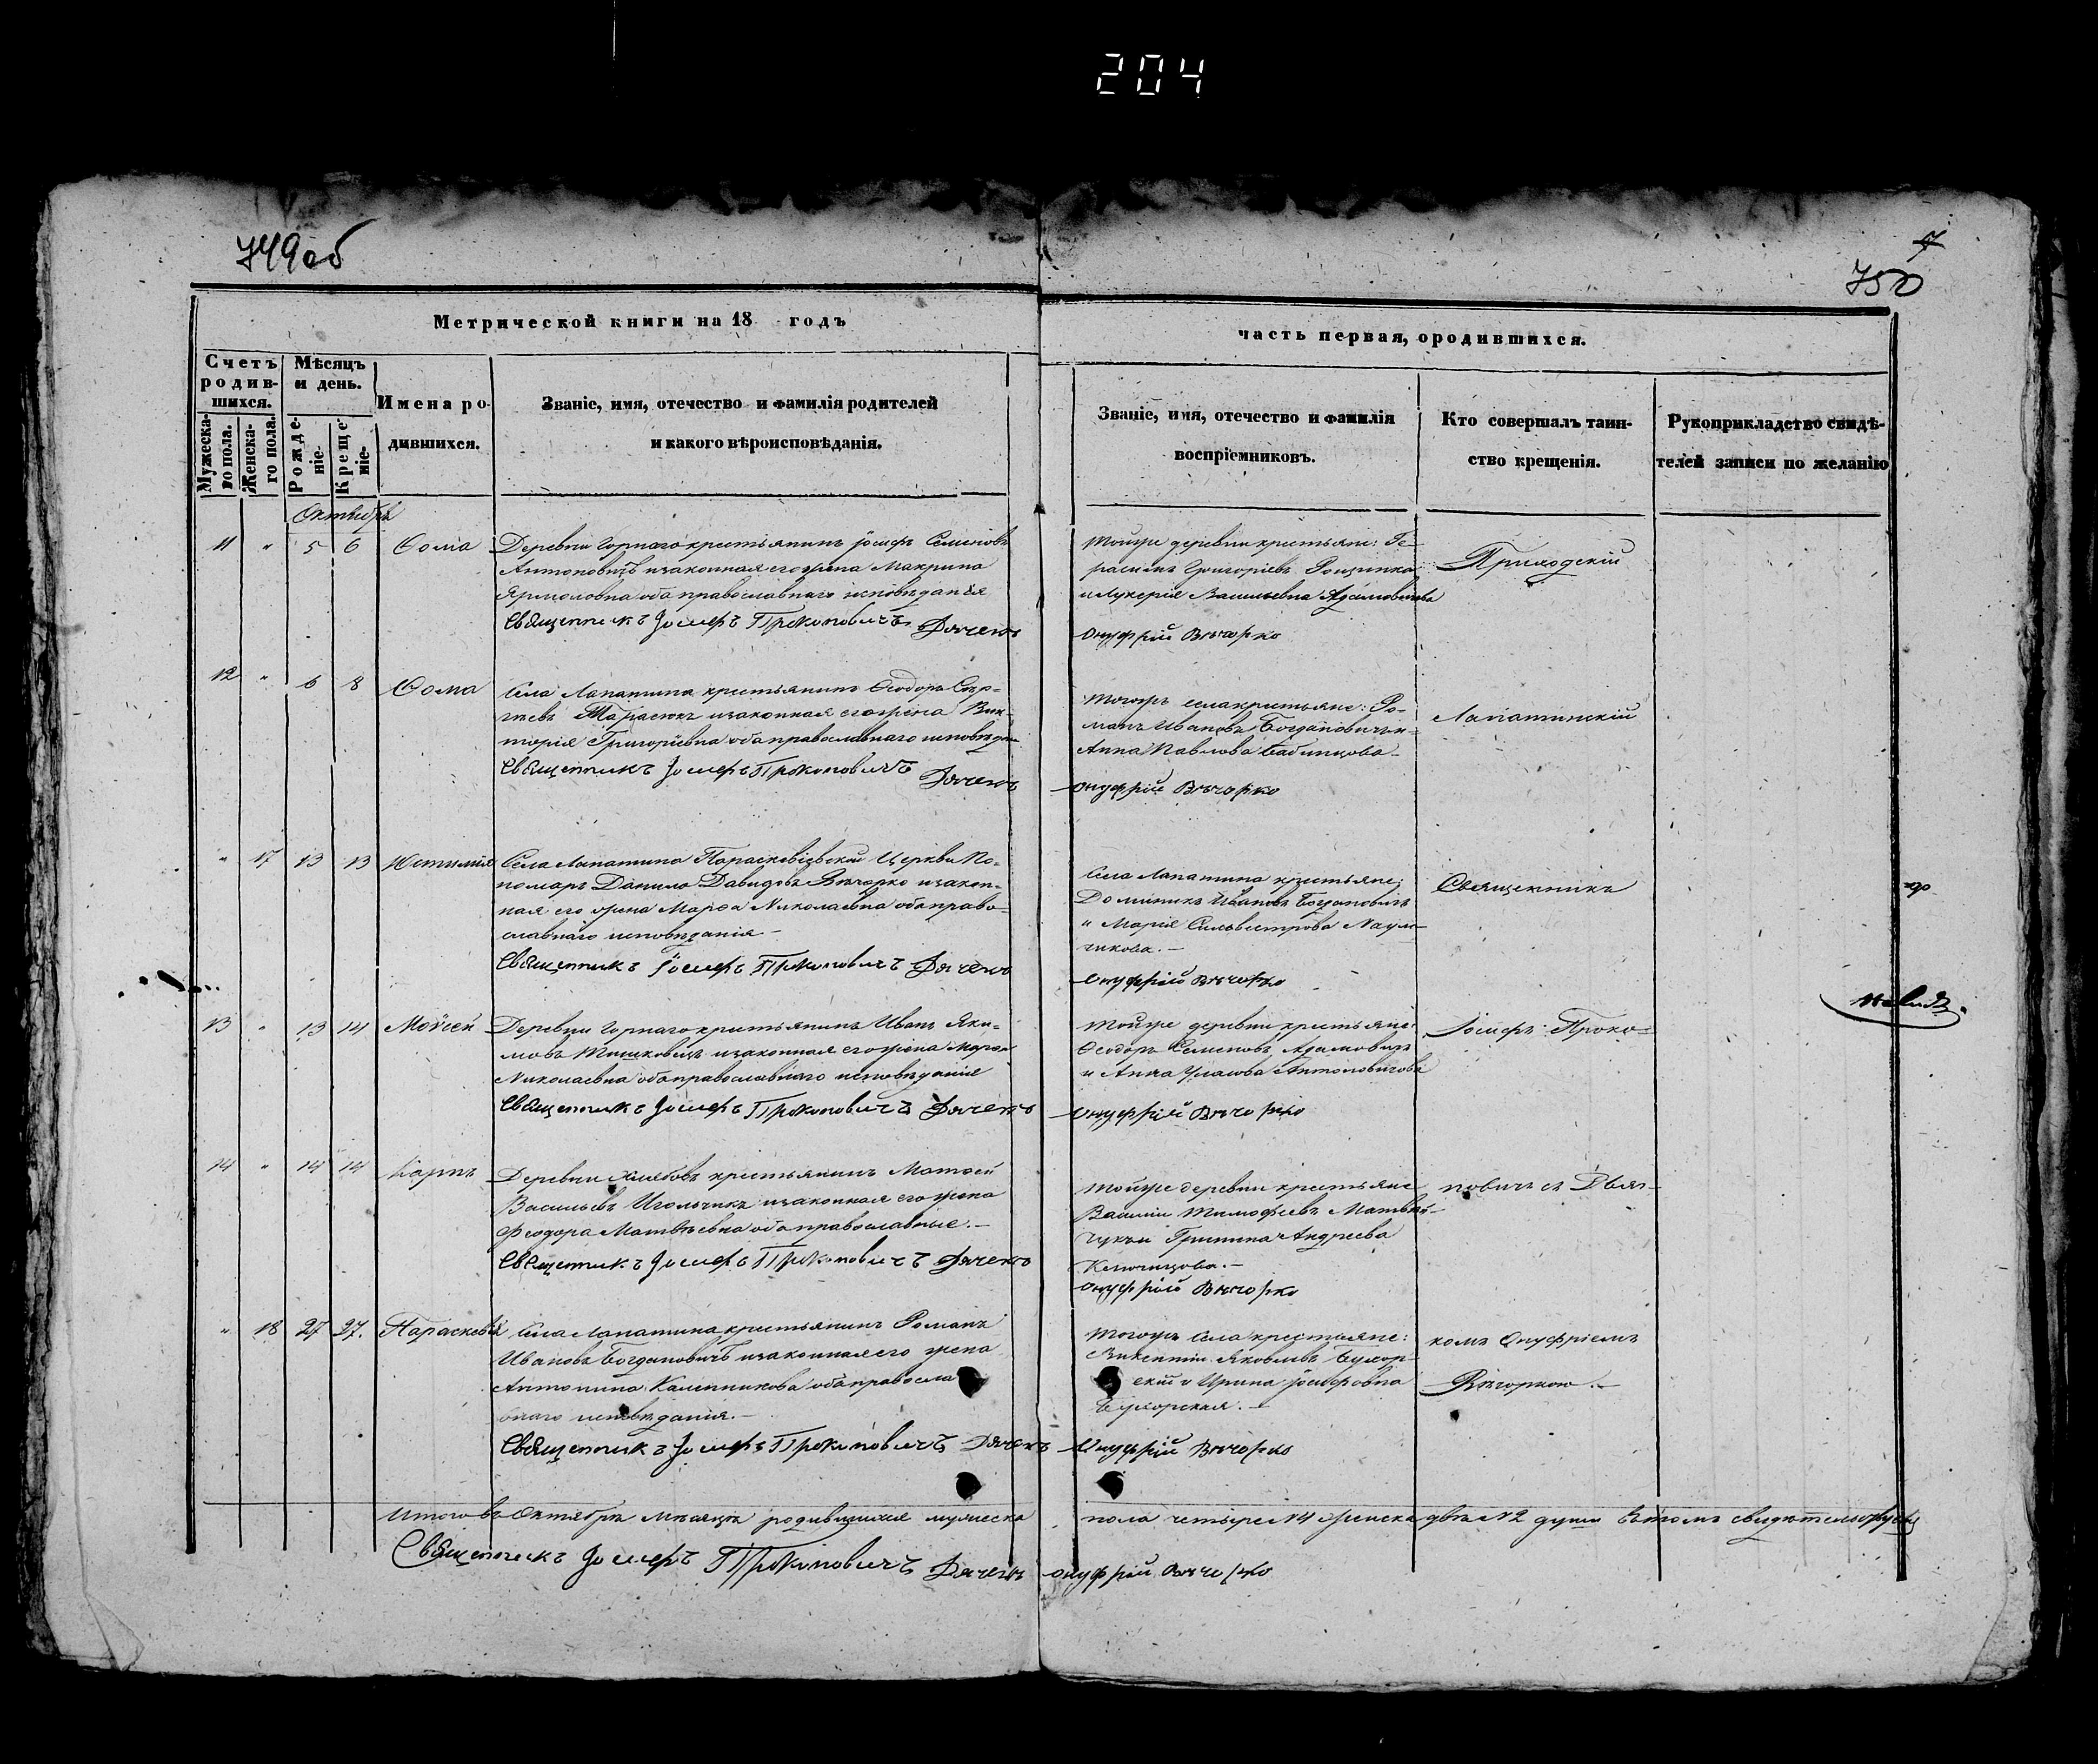 204
749об
7
750
Метрической книги на 18 годъ
часть первая, ородившихся.
Счетъ родив-
шихся.
Мѣсяцъ
и день.
Мужеска-
го пола.
Женска-
го пола.
Рожде-
ніе.
Креще-
ніе.
Имена ро-
дившихся.
Званіе, имя, отечество и фамилія родителей
и какого вѣроисповѣданія.
Званіе, имя, отечество и фамилія
воспріемниковъ.
Кто совершалъ таин-
ство крещенія.
Рукоприкладство свидѣ-
телей записи по желанію
Октябрь
11 " 5 6 Ѳома
Деревни Горнаго крестьянинъ Іосифъ Семеновъ
Антоновичъ изаконная его жена Макрина
Ярмоловна оба православнаго исповѣданія
Священникъ Іосифъ Прокоповичъ Дячекъ
Тойже деревни крестьяне: Ге-
расимъ Григоріевъ
иЛукерія Васильевна Адамовичова
Онуфрій Вѣчорко
Приходскій
12 " 6 8 Ѳома
Села Лапатина крестьянинъ Ѳеодоръ Сер-
гѣевъ Тарасюкъ изаконная его жена Вик-
торія Григоріевна оба православнаго исповѣдан
Священникъ Іосифъ Прокоповичъ Дячекъ
Тогожъ села крестьяне: Ро-
манъ Ивановъ Богдановичъ и
Анна Павлова Бабинцова
Онуфрій Вѣчорко
Лапатинскій
" 17 13 13 Устимія
Села Лапатина Параскевіевской Церкви По-
номаръ Данило Давидовъ Вѣчорко изакон-
ная его жена Марѳа Николаевна оба право-
славнаго исповѣданія
Священникъ Іосифъ Прокоповичъ Дячекъ
Села Лапатина крестьяне:
Доминикъ Ивановъ Богдановичъ
и Марія Сильвестрова Наум-
чикова.
Онуфрій Вѣчорко
Священникъ
13 " 13 14 Моѵсей
Деревни Горнаго крестьянинъ Иванъ Яки-
мовъ Тишковецъ изаконная его жена Марѳа
Николаевна оба православнаго исповѣданія
Священникъ Іосифъ Прокоповичъ Дячекъ
Тойже деревни крестьяне:
Ѳеодоръ Семеновъ Адамовичъ
и Анна Уласова Антоновичова
Онуфрій Вѣчорко
Іосифъ Проко-
14 " 14 14 Карпъ
Деревни Хлябовъ крестьянинъ Матѳей
Васильевъ Игольчикъ изаконная его жена
Ѳеодора Матвѣевна оба православные.
Священникъ Іосифъ Прокоповичъ Дячекъ
Тойже деревни крестьяне
Василій Тимофеевъ Матвѣй-
чукъ и Гринина Андреева
Онуфрій Вѣчорко
повичъ съ Дьяч-
" 18 27 27. Параскева
Села Лапатина крестьянинъ Романъ
Ивановъ Богдановичъ изаконная его жена
Антонина Калинникова оба правосла
внаго исповѣданія.
Священникъ Іосифъ Прокоповичъ Дячекъ
Тогожъ села крестьяне:
Викентій Яковлевъ Бухор-
скій и Ирина Іосифовна
Бухорская.
Онуфрій Вѣчорко
комъ Онуфріемъ
Вѣчоркою.
Итого въ Октябрѣ мѣсяцѣ родившихся мужеска
пола четыре 4 женска двѣ 2 души вътомъ свидѣтельствуемъ
Священникъ Іосифъ Прокоповичъ Дячекъ Онуфрій Вѣчорко